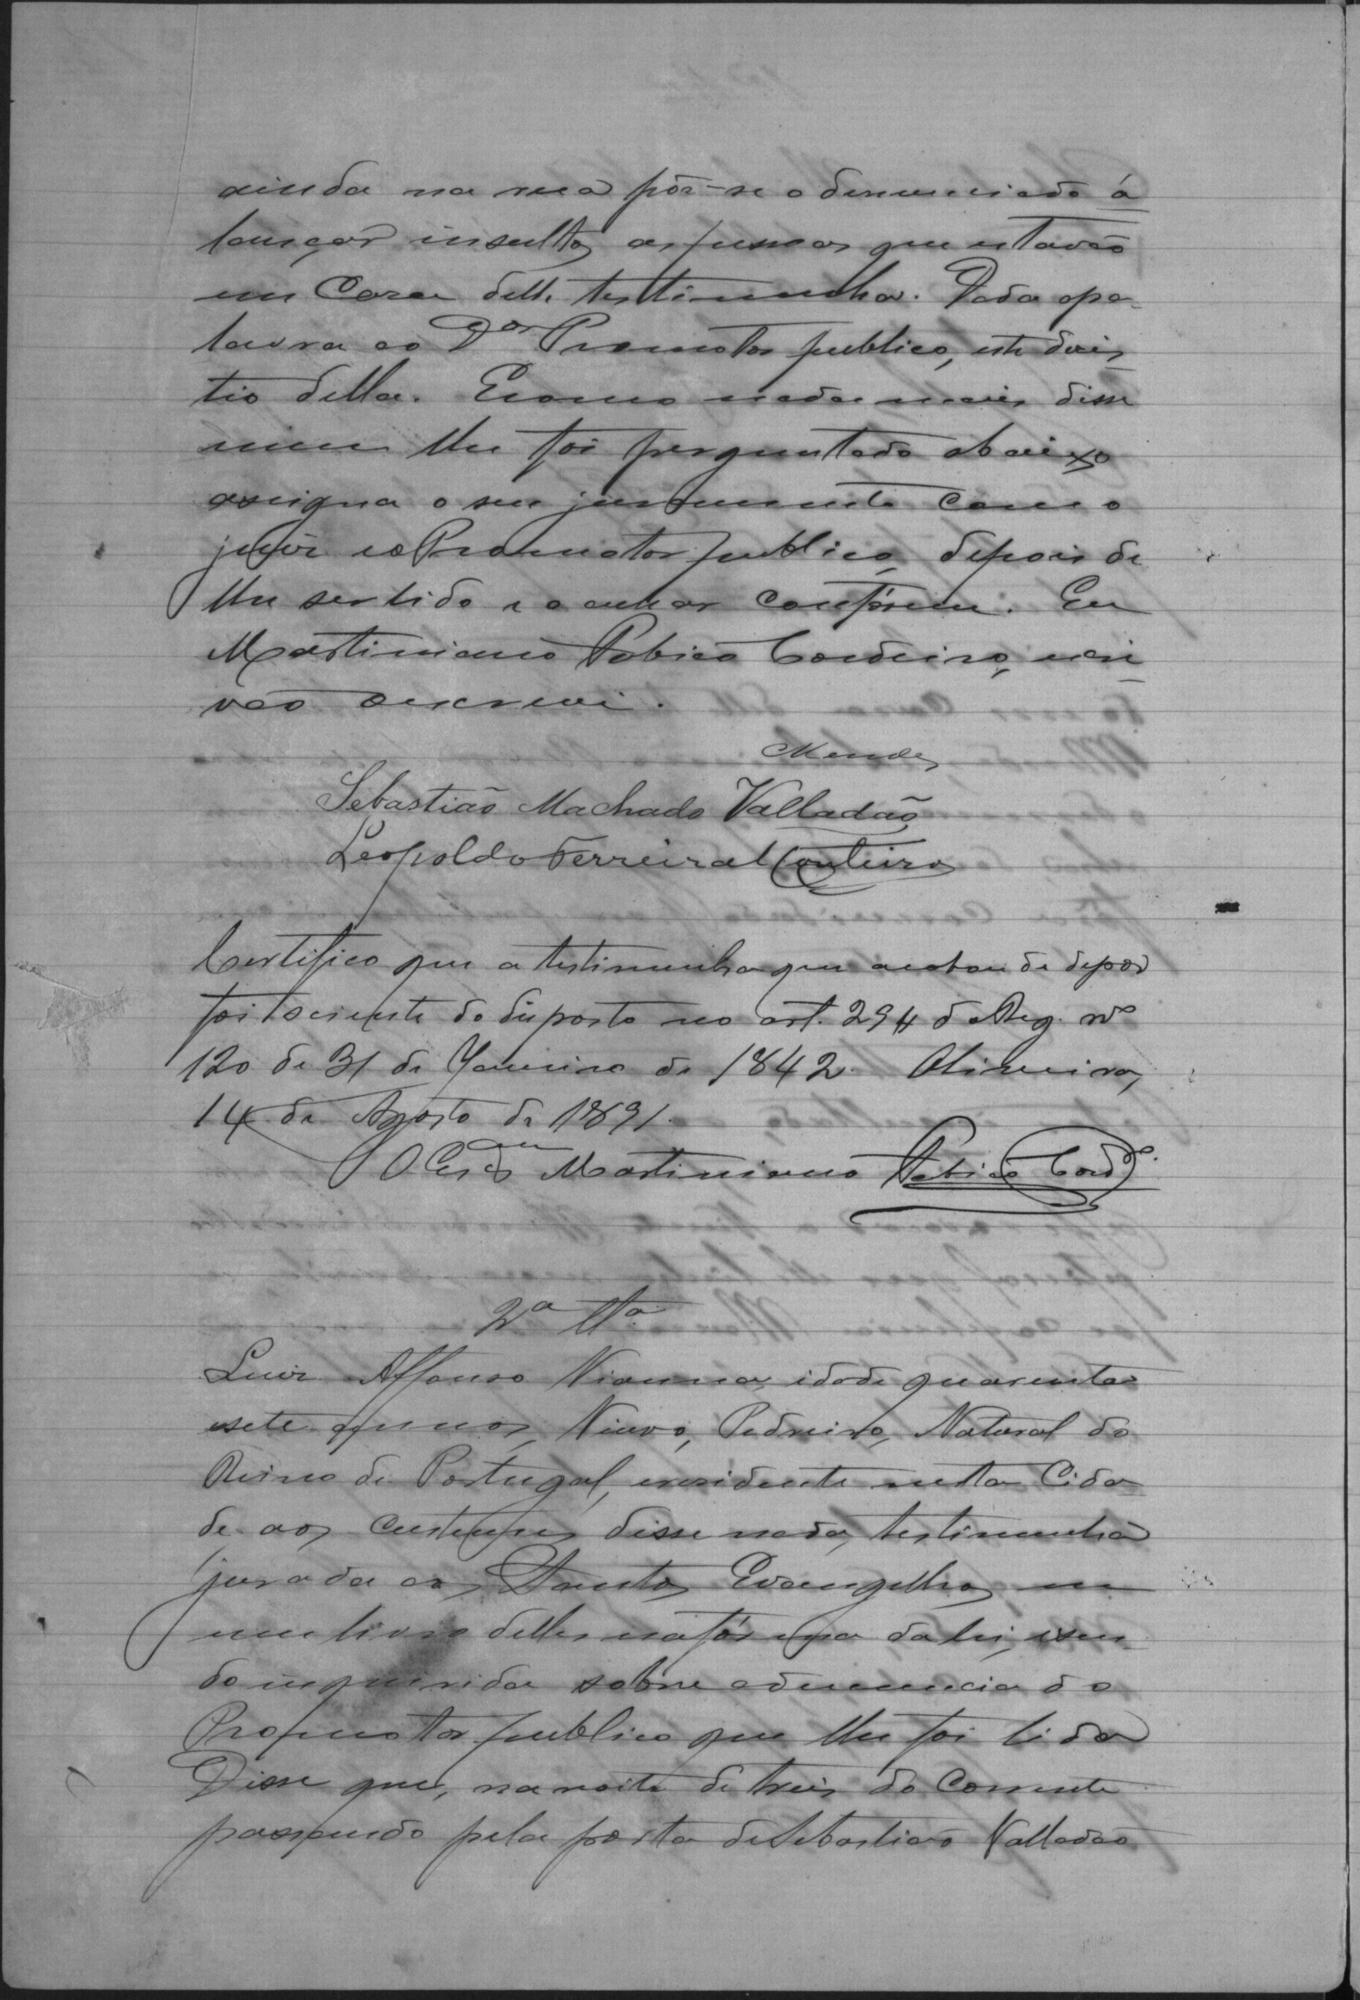 ainda na rua pôz-se o denunciado á
lançar insultos as pessoas que estavão
em Casa delle testimunha. Dada apa-
lavra ao Dor Promotor publico, este dezis-
tio della. Ecomo nada mais disse
nem lhe foi perguntado abaixo
assigna o seu juramento com o
juiz eo Promotor publico, depois de
lhe ser lido e o achar confórme. Eu
Martiniano Cordeiro, escri-
vão oescrevi.
Mendes
Sebastião Machado Valladão
Leopoldo Ferreira Monteiro
Certifico que a testimunha que acabou de depor
foi sciente do disposto no art. 294 do Reg. no
120 de 31 de Janeiro de 1842. Oliveira,
14 de Agosto de 1891.
O Escam Martiniano Cordo.
2a tta
Luiz Affonso Vianna, idade quarenta
esete annos, Viuvo, Pedreiro, Natural do
Reino de Portugal, eresidente nesta Cida
de, aos custumes disse nada, testimunha
jurada aos Santos Evangelhos em
um livro delles nafórma da lei, esen
do inquirida sobre adenuncia do
Promotor publico que lhe foi lida
Disse que, na noite de treis do Corrente
passando pela porta deSebastião Valladão